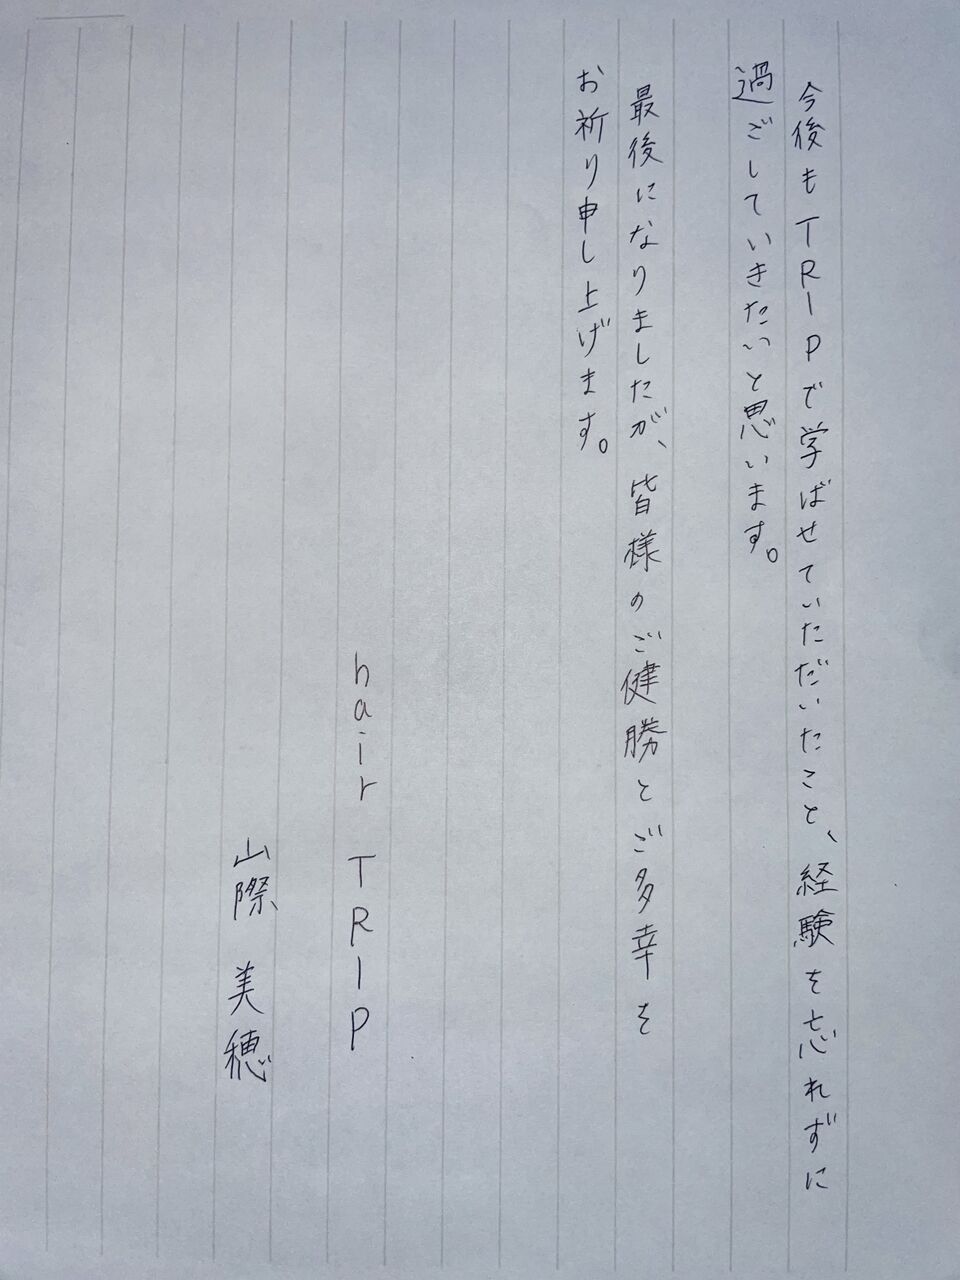 今後もTRIPで学ばせていただいたこと、経験を忘れずに
過ごしていきたいと思います。
最後になりましたが、皆様のご健勝とご多幸を
お祈り申し上げます。
hair TRIP
山際 美穂